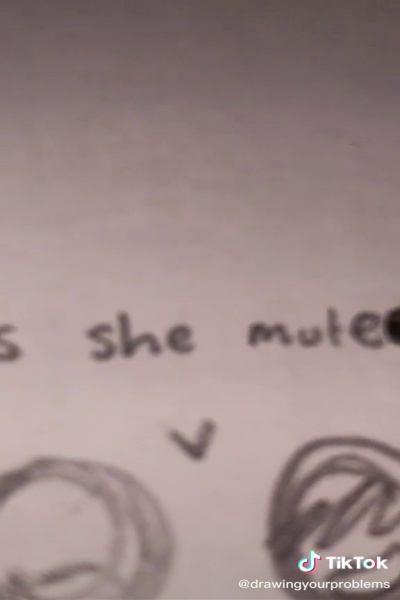 s she mute
TikTok
@drawingyourproblems